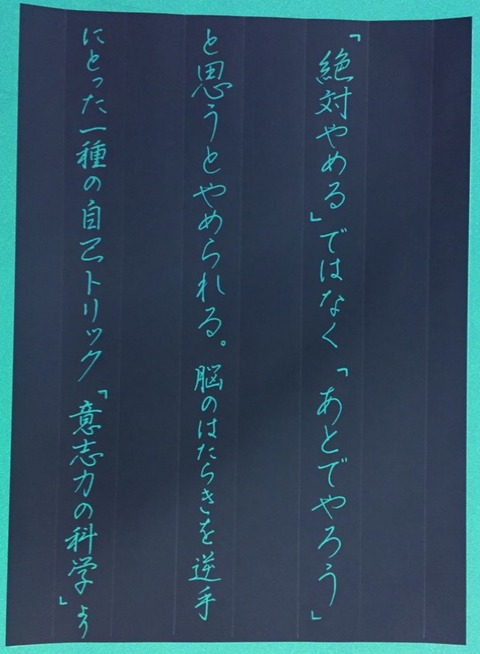 「絶対やめる」ではなく「あとでやろう」
と思うとやめられる。脳のはたらきを逆手
にとった一種の自己トリック「意志力の科学」より